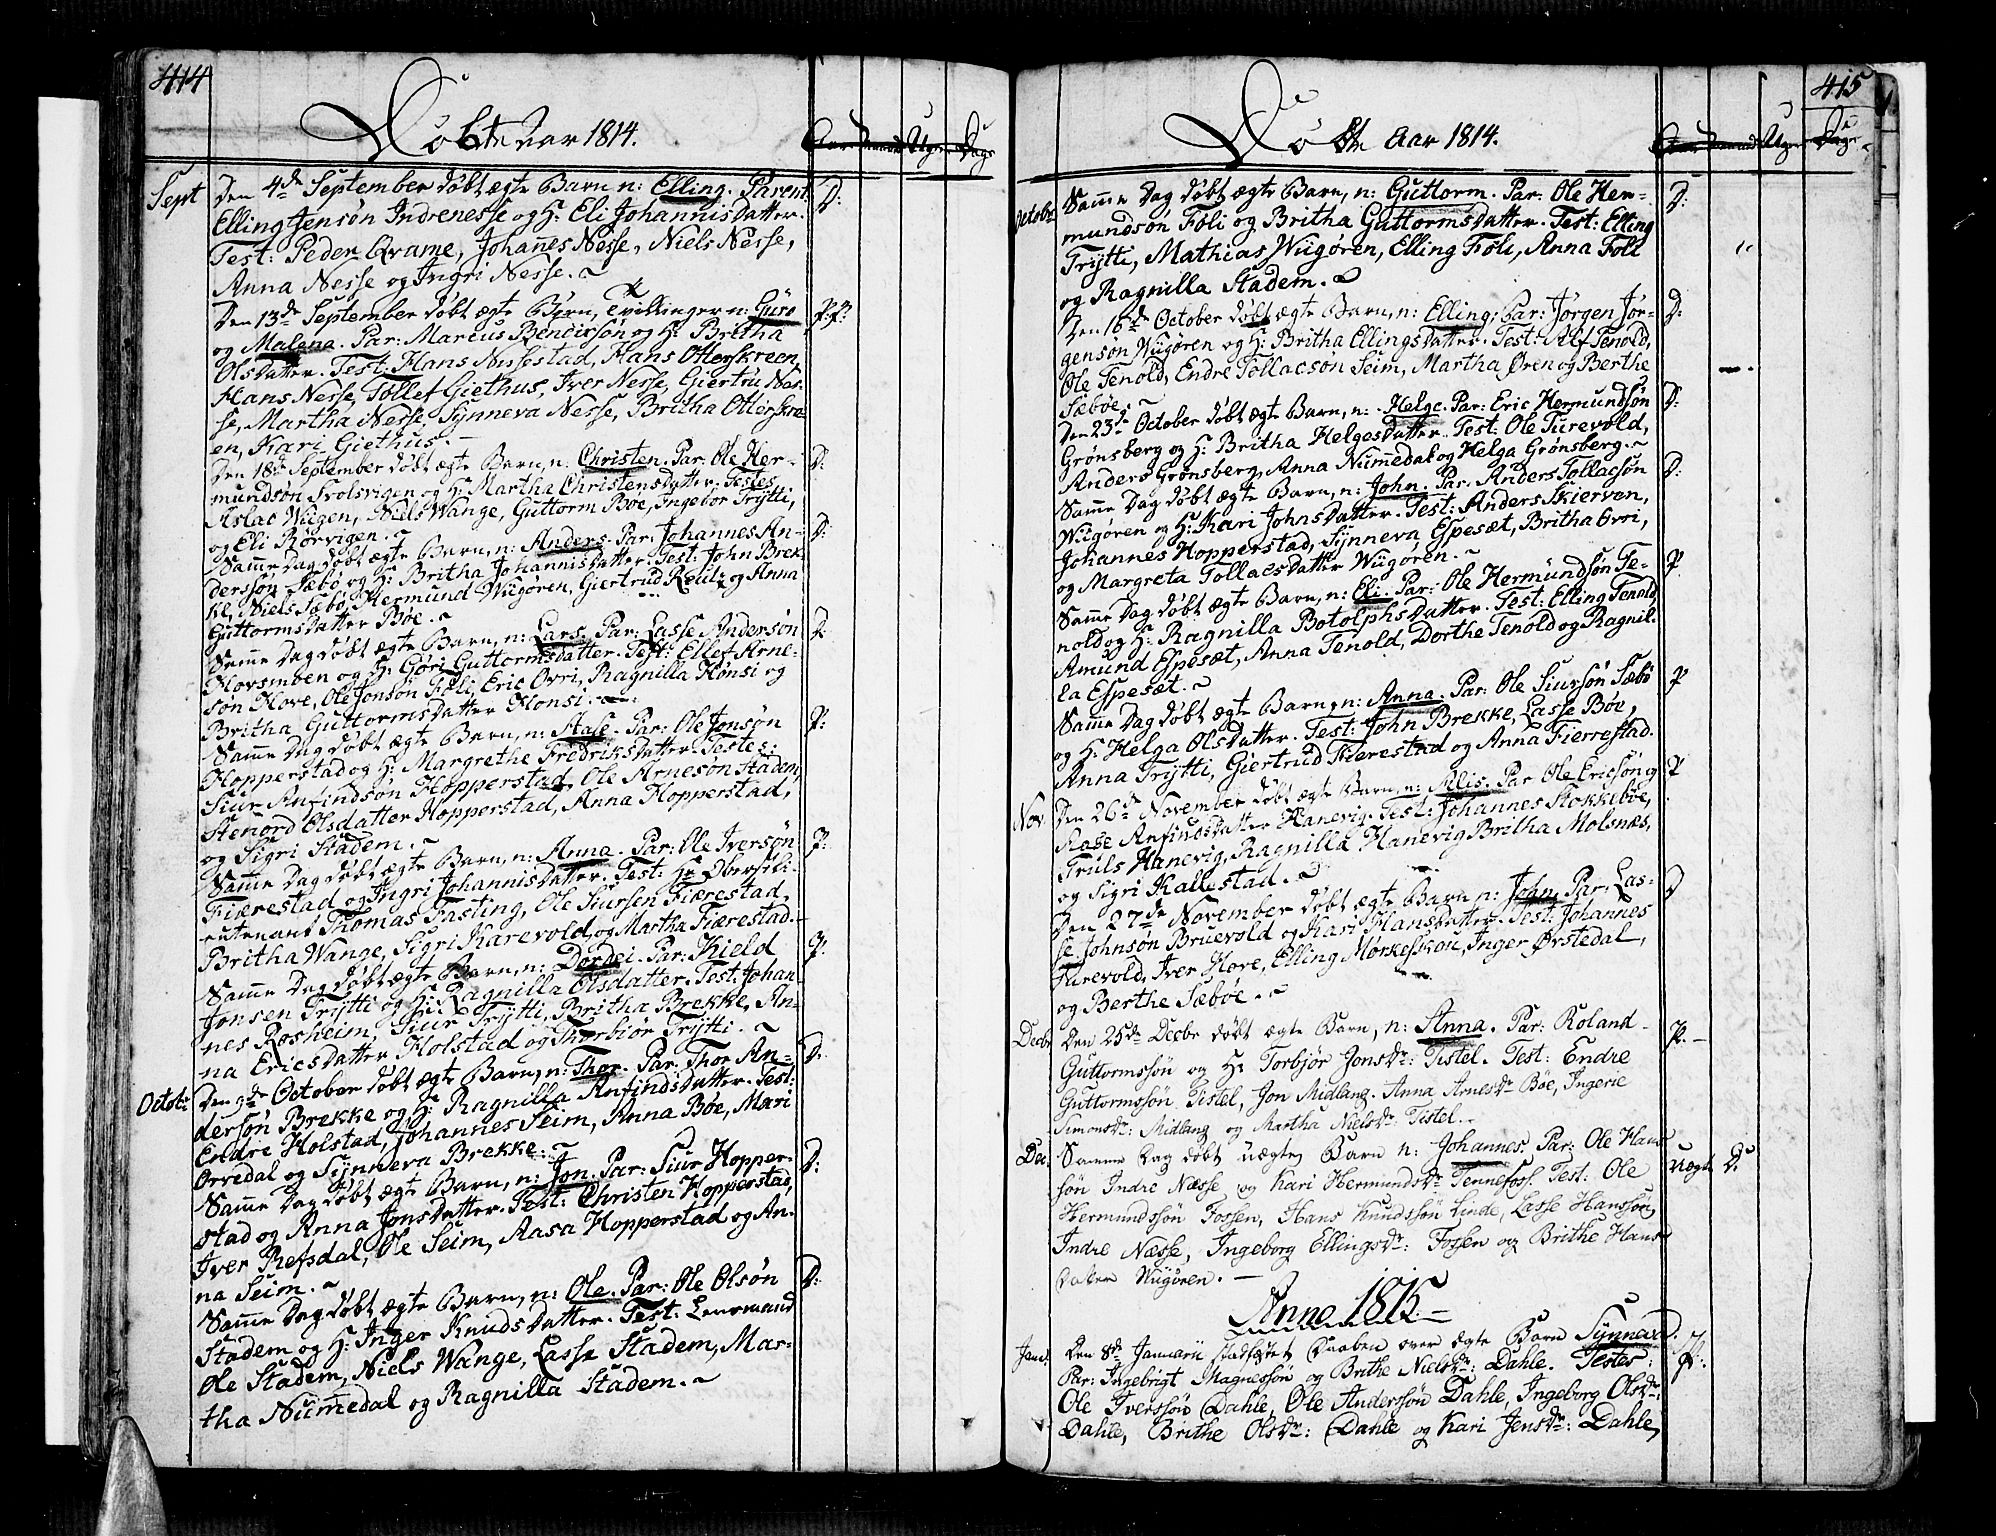 414
Døbte Aar 1814.
Aar. Maan. Uger Dage
Sept Den 4de September døbt ægte Barn, n: Elling. Parent D:
Elling Jensøn Indrenesse og H: Eli Johannisdatter.
Test: Peder Qvame, Johannes Nesse, Niels Nesse,
Anna Nesse og Ingri Nesse.
Den 13de September døbt ægte Børn, Tvillinger n: Guro P:P:
og Malena. Par: Marcus Bendixsøn og H: Britha
Olsdatter. Test: Hans Nussestad, Hans Otterskreen,
Hans Nesse, Tollef Giethus, Iver Nesse, Giertru Nes-
se, Martha Nesse, Synneva Nesse, Britha Otterskre
en, Kari Giethus.
Den 18de September døbt ægte Barn, n: Christen. Par: Ole Her- D:
mundsøn Svolsvigen og H: Martha Christensdatter. Testes
Aslac Wiigen, Niels Wange, Guttorm Bøe, Ingebor Trÿtti,
og Eli Rörvigen.
Samme Dag døbt ægte Barn, n: Anders. Par: Johannes An- D:
dersøn Sæbø og H: Britha Johannisdatter. Test: John Brek-
ke, Niels Sæbø, Hermund Wiigøren, Giertrud Reutz og Anna
Guttormsdatter Bøe.
Samme Dag døbt ægte Barn, n: Lars. Par: Lasse Andersøn D:
Hovsmoen og H: Göri Guttormsdatter. Test: Ellef Arne-
søn Hove, Ole Jonsøn Føli, Eric Ovri, Ragnilla Hønsi og
Britha Guttormsdatter Hønsi.
Samme Dag døbt ægte Barn, n: Aase. Par: Ole Jonsøn P:
Hopperstad og H: Margrethe Fredriksdatter. Testes:
Siur Anfindsøn Hopperstad, Ole Arnesøn Stadem,
Stenord Olsdatter Hopperstad, Anna Hopperstad,
og Sigri Stadem.
Samme Dag døbt ægte Barn, n: Anna. Par: Ole Iversøn P:
Fiærestad og Ingri Johannisdatter. Test: Hr Oberstli-
eutenant Thomas Fasting, Ole Siursen Fiærestad,
Britha Wange, Sigri Karevold, og Martha Fiærestad.
Samme Dag døbt ægte Barn, n: Dordei. Par: Kield P:
Jonsen Trÿtti og H: Ragnilla Olsdatter. Test: Johan-
nes Rosheim, Siur Trÿtti, Britha Brekke, An-
na Ericsdatter Holstad og Thorbiör Trÿtti.
Octob: Den 9de October døbt ægte Barn, n: Thor. Par: Thor An- D:
dersøn Brekke og H: Ragnilla Anfindsdatter. Test:
Endre Holstad, Johannes Seim, Anna Bøe, Mari
Orvedal og Synneva Brekke.
Samme Dag døbt ægte Barn, n: Jon. Par: Siur Hopper- D:
stad og Anna Jonsdatter. Test: Christen Hopperstad,
Iver Refsdal, Ole Seim, Aasa Hopperstad og An-
na Seim.
Samme Dag døbt ægte Barn, n: Ole. Par: Ole Olsøn D:
Stadem og H: Inger Knudsdatter. Test: Lensmand
Ole Stadem, Niels Wange, Lasse Stadem, Mar-
tha Nummedal og Ragnilla Stadem.
415
Døbte Aar 1814.
Aar Maaned Uger Dage
Octobr Samme Dag døbt ægte Barn, n: Guttorm. Par: Ole Her- D:
mundsøn Föli og Britha Guttormsdatter. Test: Elling
Trÿtti, Mathias Wiigøren, Elling Föli, Anna Föli
og Ragnilla Stadem.
Den 16de October døbt ægte Barn, n: Elling. Par: Jørgen Jør- D:
gensøn Wiigøren og H: Britha Ellingsdatter. Test: Alf Tenold,
Ole Tenold, Endre Tollacsøn Seim, Martha Øren og Berthe
Sæbøe.
Den 23de October døbt ægte Barn, n: Helge. Par: Eric Hermundsøn D:
Grønsberg og H: Britha Helgesdatter. Test: Ole Turevold,
Anders Grønsberg, Anna Nummedal og Helga Grønsberg.
Samme Dag døbt ægte Barn, n: John. Par: Anders Tollacsøn D:
Wiigøren og H: Kari Johnsdatter. Test: Anders Skierven,
Johannes Hopperstad, Synneva Espesæt, Britha Ovri,
og Margreta Tollacsdatter Wiigøren.
Samme Dag døbt ægte Barn, n: Eli. Par: Ole Hermundsøn Te- P.
nold og H: Ragnilla Botolphsdatter. Test: Elling Tenold,
Amund Espesæt, Anna Tenold, Dorthe Tenold og Ragnil-
la Espesæt.
Samme Dag døbt ægte Barn, n: Anna. Par: Ole Siursøn Sæbö P
og H: Helga Olsdatter. Test: John Brekke, Lasse Bøe,
Anna Trÿtti, Giertrud Fierestad og Anna Fierrestad.
Nov. Den 26de November døbt ægte Barn, n: Alis. Par Ole Ericsøn og P
Aase Anfindsdatter Hanevig. Test: Johannes Stokkebøe,
Truls Hanevig, Ragnilla Hanevig Britha Molsnæs,
og Sigri Kallestad.
Den 27de November døbt ægte Barn n: John. Par. Las- D
se Johnsøn Bruevold og Kari Hansdatter. Test: Johannes
Furevold, Iver Hove, Elling Mørkeskou, Inger Ørstedal,
og Berthe Sæbøe.
Decbr Den 25de Decbr døbt ægte Barn, n: Anna. Par: Roland P.
Guttormssøn og H: Torbjör Jonsdr: Tistel. Test: Endre
Guttormssøn Tistel, Jon Midlang. Anna Arnesdr Bøe, Ingerie
Simonsdr: Midlang og Martha Nielsdr Tistel.
Dec: Samme Dag døbt uægte Barn n: Johannes. Par: Ole Hans Uægt. D:
søn Indre Næsse og Kari Hermundsdr Tennefoss. Test: Ole
Hermundssøn Fossen, Hans Knudssøn Linde, Lasse Hanssøn
Indre Næsse, Ingeborg Ellingsdr: Fossen og Brithe Hans
datter Wiigøren.
Anno 1815.
Jan: Den 8de Januarii stadfæstet Daaben over ægte Barn Synneva. P:
Par: Ingebrigt Magnessøn og Brithe Nielsdr: Dahle. Testes:
Ole Iverssøn Dahle, Ole Anderssøn Dahle, Ingeborg Olsdr:
Dahle, Brithe Olsdr: Dahle og Kari Jensdr: Dahle,